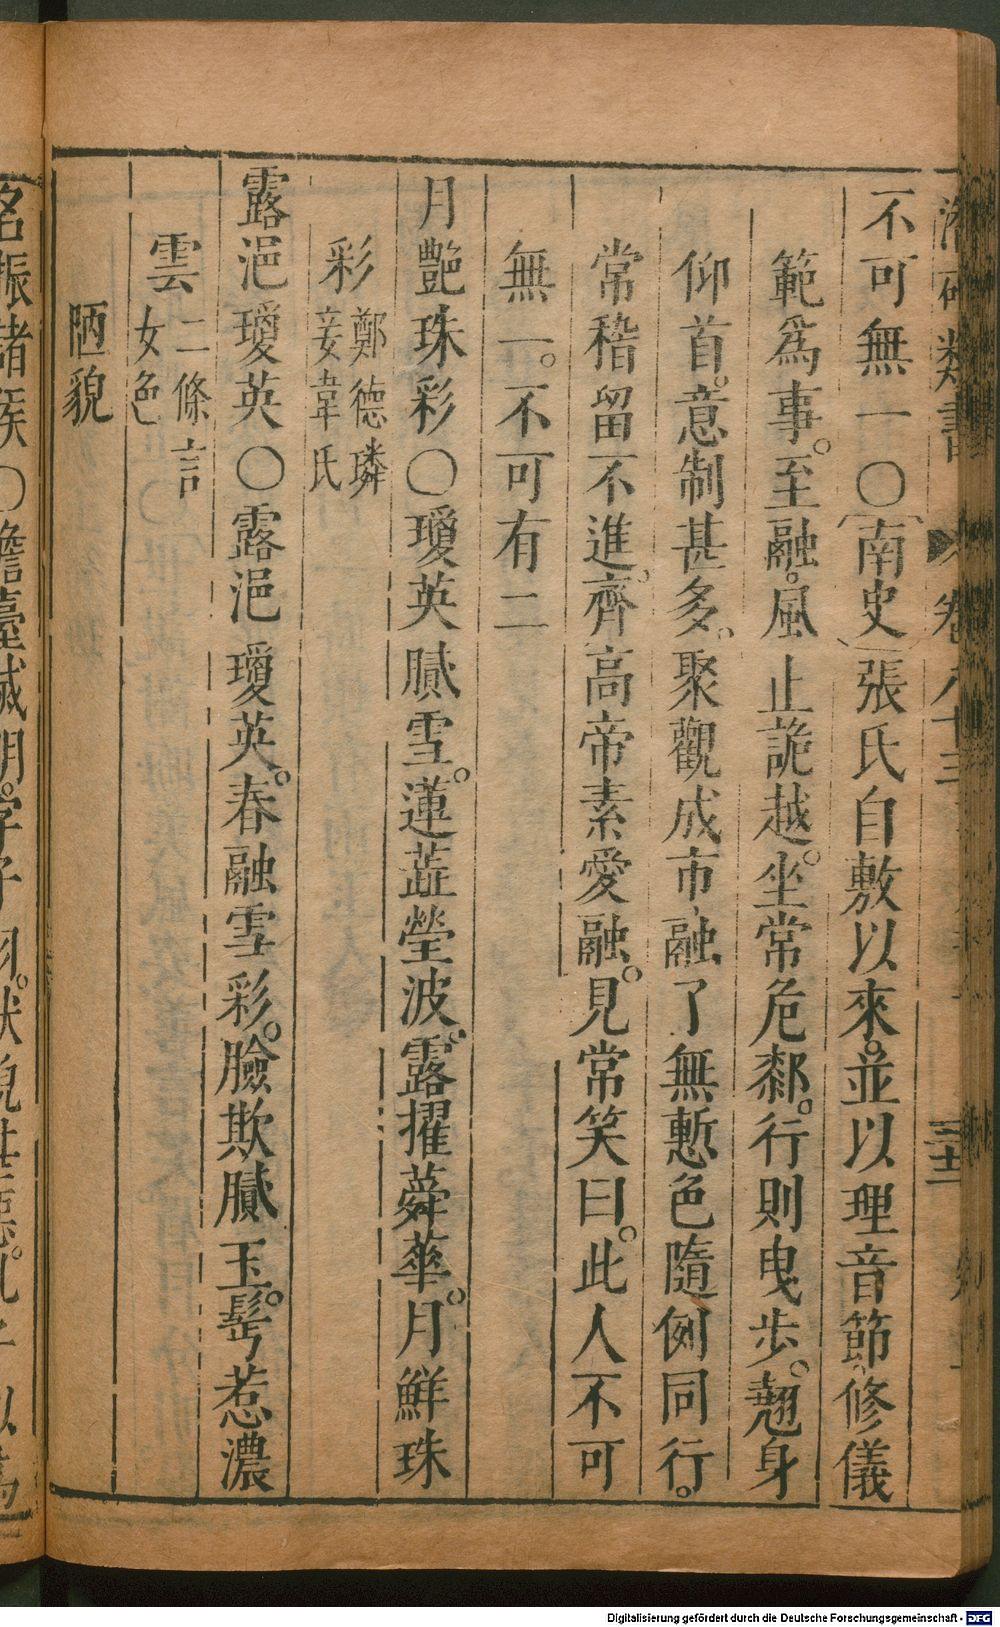 潛確類書 卷八十三
不可無一○南史張氏自敷以來。並以理音節、修儀
範爲事。至融。風止詭越。坐常危郄。行則曳步。翹身
仰首。意制甚多。聚觀成市、融了無慙色隨例同行。
常稽留不進。齊高帝素愛融。見常笑曰。此人不可
無一。不可有二
月艷珠彩○瓊英膩雪。蓮蕋瑩波。露擢蕣華。月鮮珠
彩 鄭德璘妾韋氏
露浥瓊英○露浥瓊英。春融雪彩。臉欺膩玉。髩惹濃
雲 二條言女色
陋貌
名振諸侯○澹臺滅明。字子羽。狀貌甚惡。孔子以爲
Digitalisierung gefördert durch die Deutsche Forschungsgemeinschaft - DFG